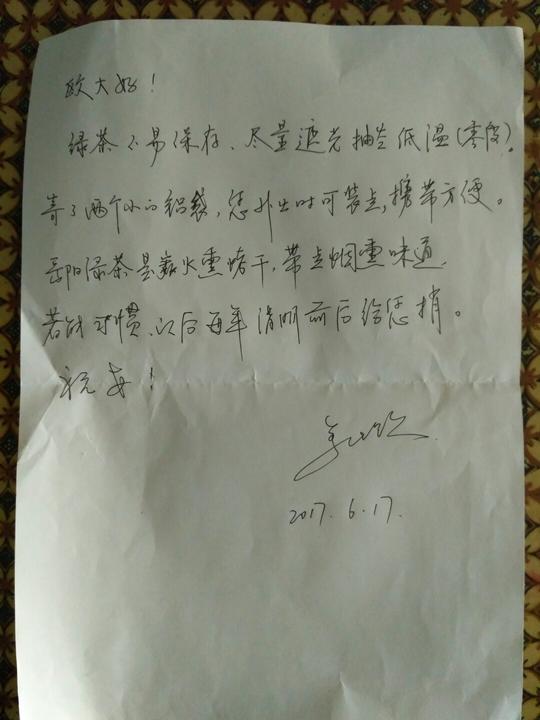 欧大好！
绿茶不易保存、尽量遮光抽空低温(零度)。
寄了两个小的铝袋，您外出时可装点，携带方便。
岳阳绿茶是薪火熏烤干，带点烟熏味道，
若能习惯、以后每年清明前后给您捎。
祝安！
2017.6.17.